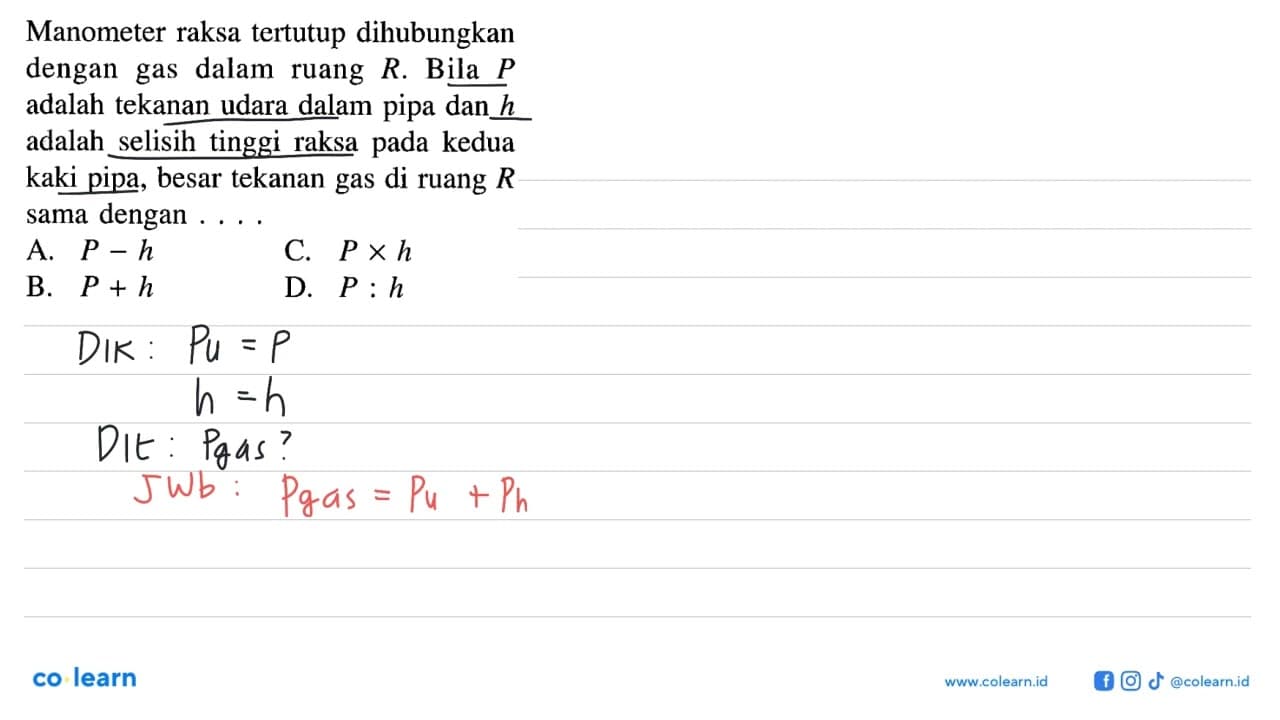 Manometer raksa tertutup dihubungkan
dengan gas dalam ruang R. Bila P
adalah tekanan udara dalam pipa dan h
adalah selisih tinggi raksa pada kedua
kaki pipa, besar tekanan gas di ruang R
sama dengan . . . .
A. P – h C. P × h
B. P + h D. P : h
DIK : Pu = P
h = h
DIt : Pgas ?
JWb : Pgas = Pu + Ph
co learn www.colearn.id @colearn.id